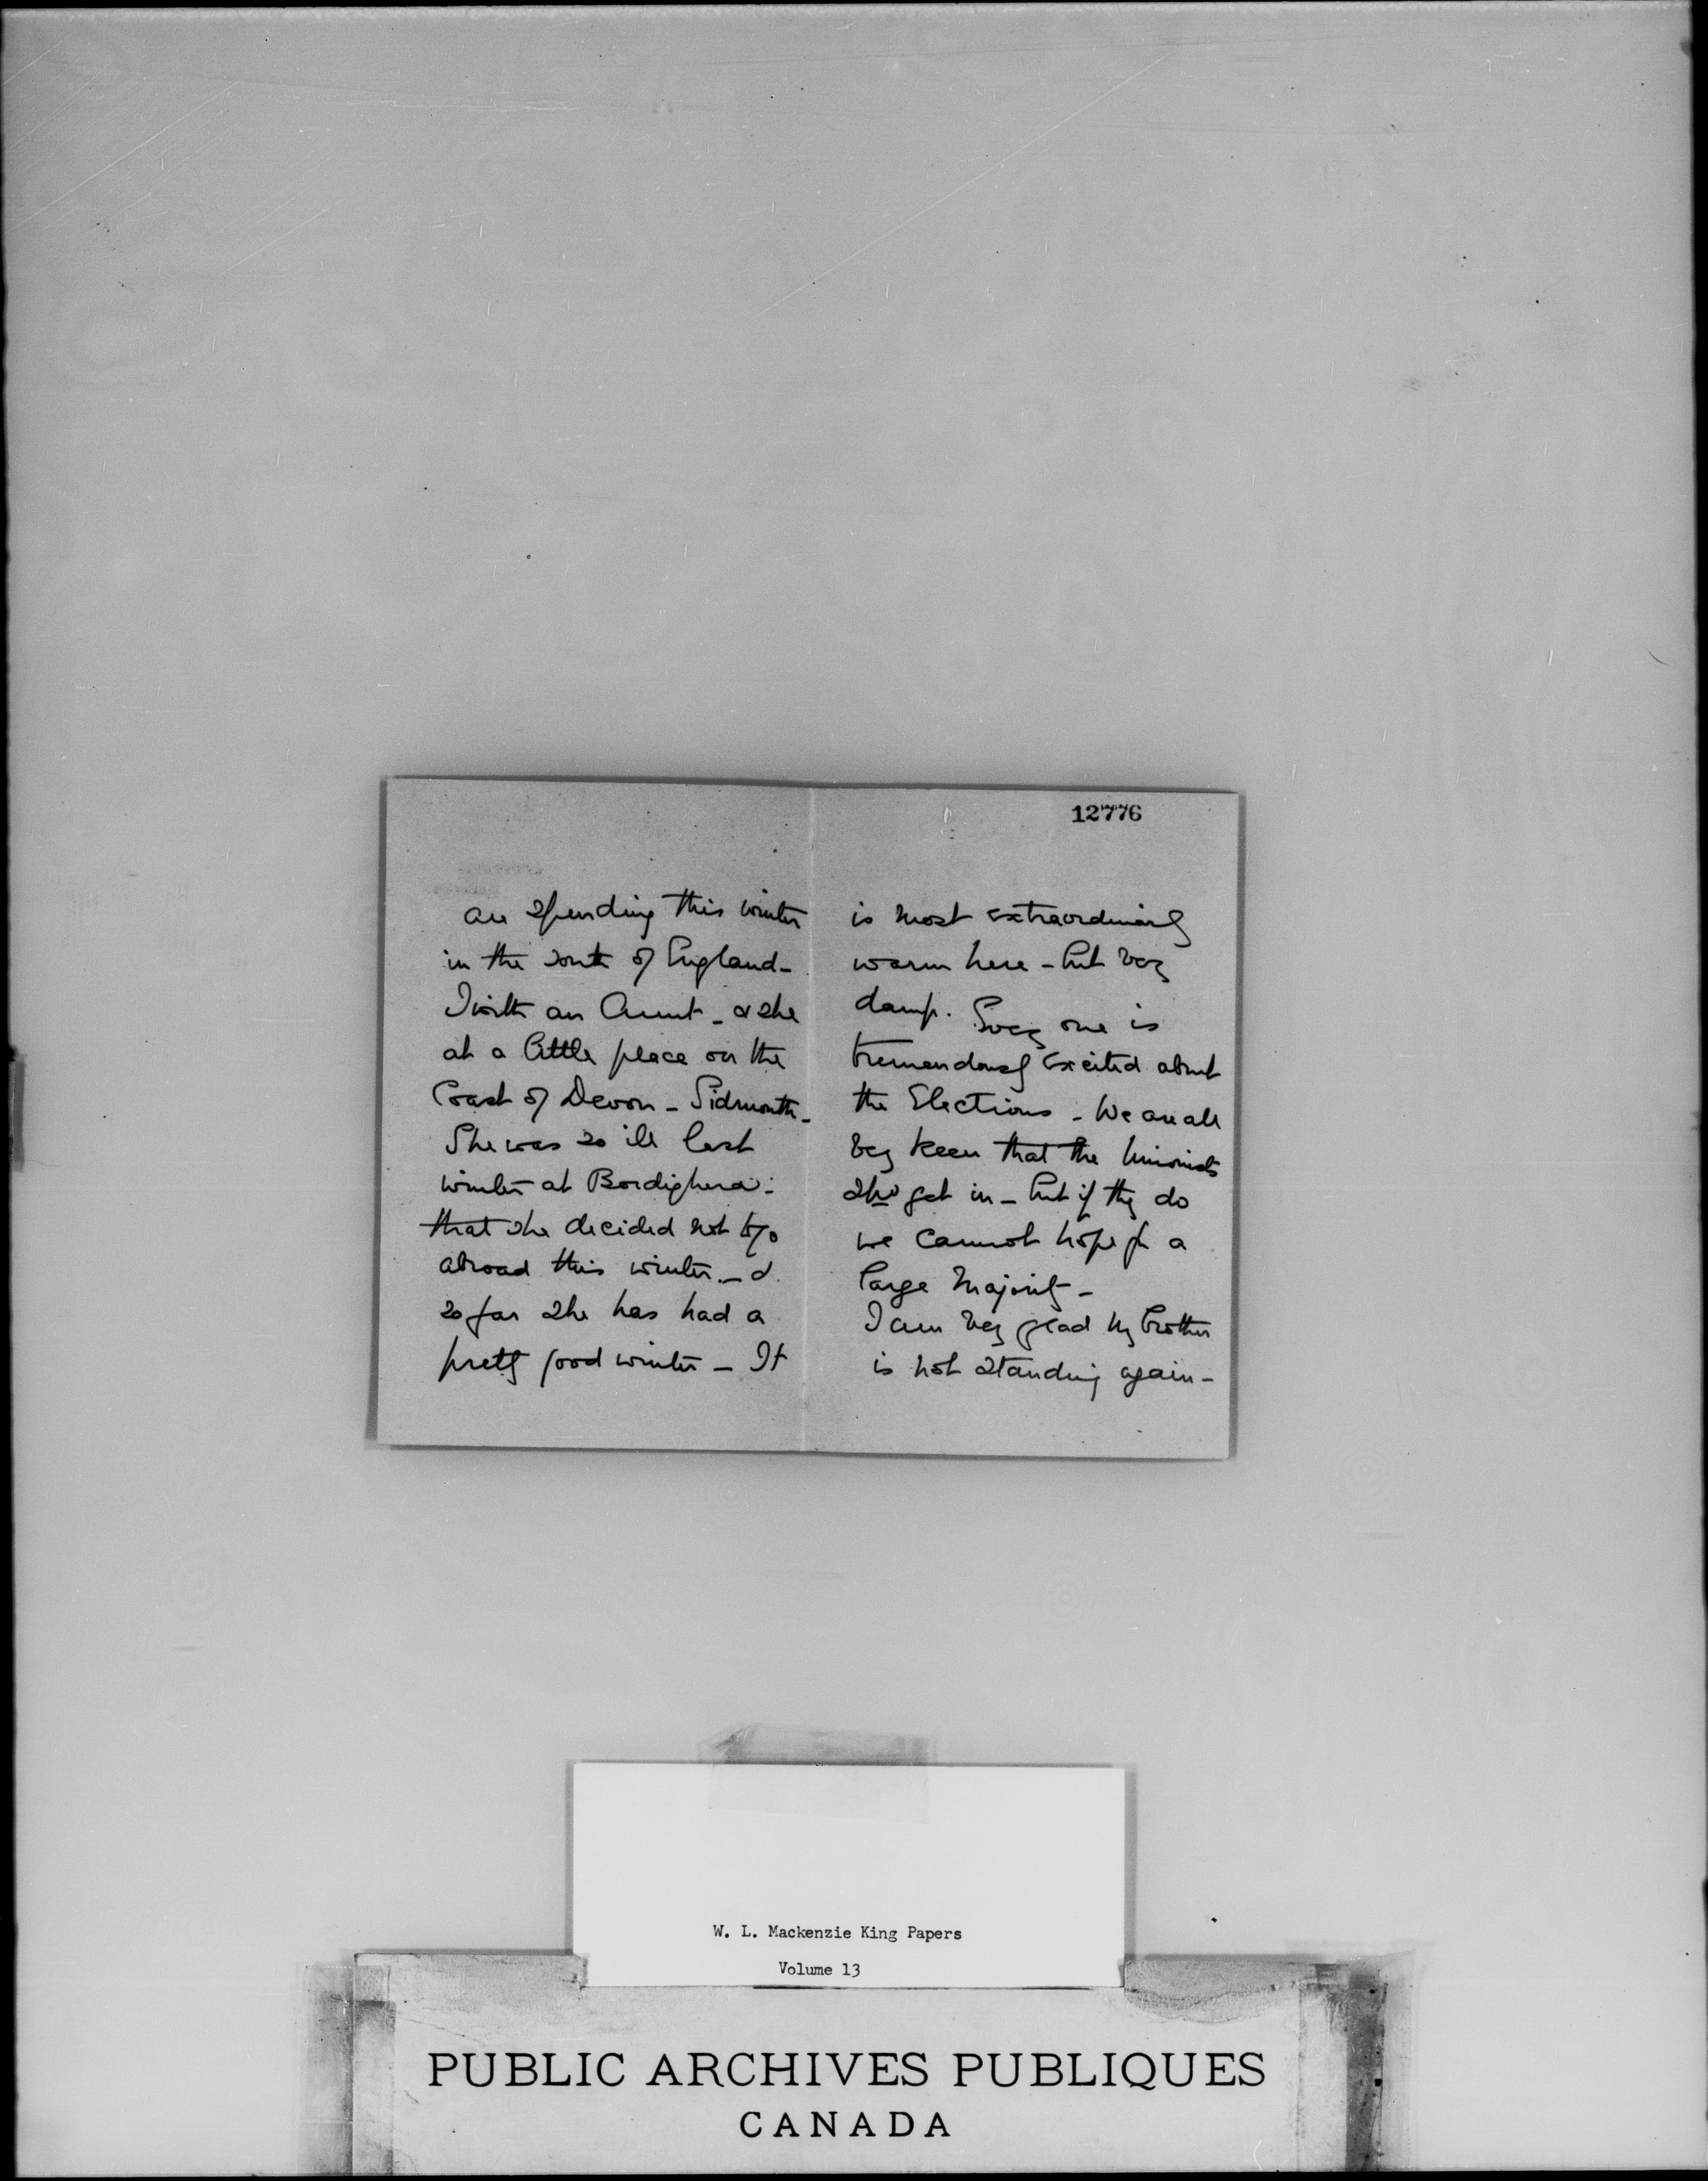 12776
are spending this winter
in the south of England -
I with an Aunt - & she
at a little place on the
Coast of Devon - Sidmouth -
She was so ill last
winter at Bordighera -
that she decided not to go
abroad this winter. - &
so far she has had a
pretty good winter - It
is most extraordinarily
warm here - but very
damp. Every one is
tremendously excited about
the Elections - We are all
very keen that the Unionists
shd get in - but if they do
we cannot hope for a
large majority -
I am very glad my Brother
is not standing again -
W. L. Mackenzie King Papers
Volume 13
PUBLIC ARCHIVES PUBLIQUES
CANADA